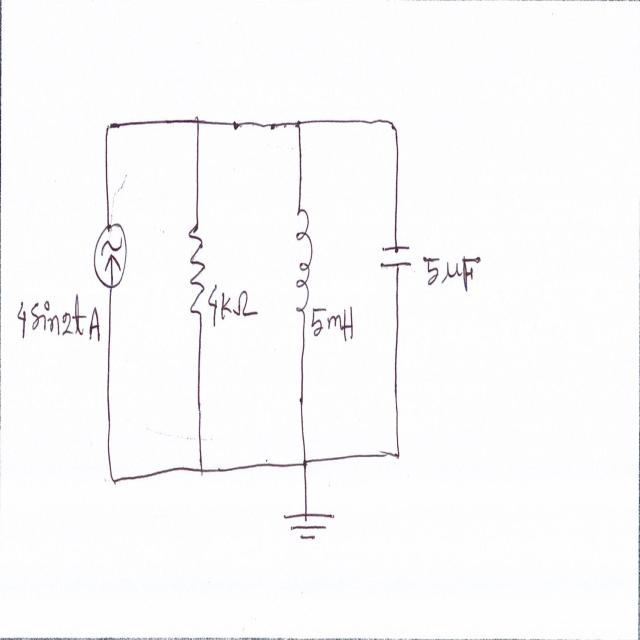 4sin2t A
4kΩ
5mH
5μF